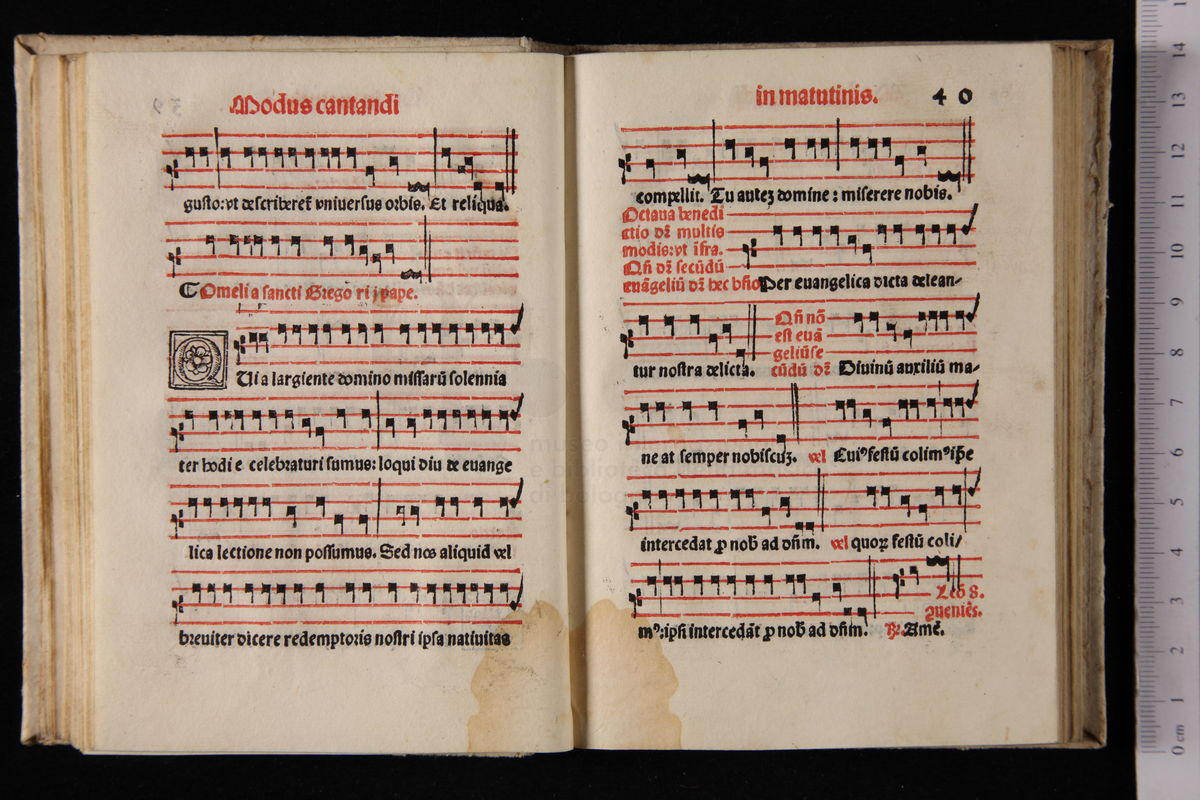 Modus cantandi
gusto:vt describeret vniuersus orbis. Et reliqua.
Omelia sancti Gregorij pape.
QVia largiente domino missarũ solennia
ter hodie celebraturi sumus: loqui diu de euange
lica lectione non possumus. Sed nos aliquid vel
breuiter dicere redemptoris nostri ipsa natiuitas
in matutinis. 40
compellit. Tu auteʒ domine : miserere nobis.
Octaua benedi
ctio dʒ multis
modis:vt ĩfra.
Qñ dʒ secũdũ
euãgeliũ dʒ hec bñο
Per euangelica dicta delean-
tur nostra delicta.
Qñ nõ
est euã
geliũ se
cũdũ dʒ
Diuinũ auxiliũ ma-
ne at semper nobiscuʒ. vel Cuiꝰ festũ colimꝰ ip̃e
intercedat ꝓ nob̃ ad dñm. vel quoꝝ festũ coli/
mꝰ:ipsi intercedãt ꝓ nob̃ ad dñm. ℟. Amẽ.
museo
e biblioteca
di bologna
0 cm 1 2 3 4 5 6 7 8 9 10 11 12 13 14